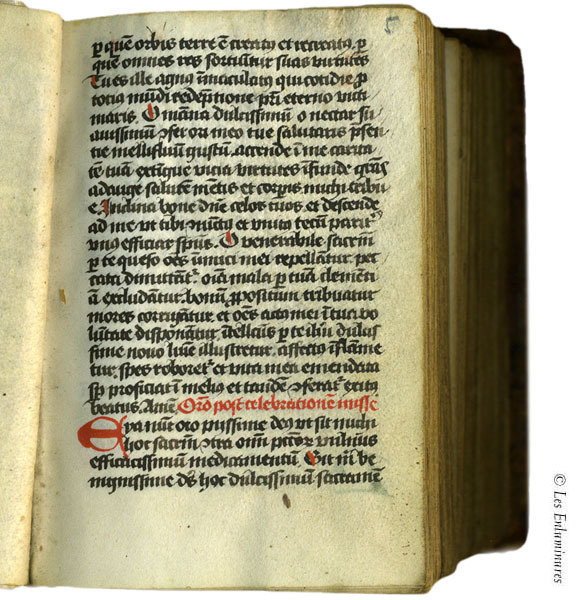 5
p quē orbis terre ē creatꝰ et recreatꝰ. p
quē omnes res sortiūtur suas virtutes
Tu es ille agnus īmaculatꝰ qui cotidie p
totiꝰ mūdi redēptione pri eterno victi
maris. O manna dulcissimū o nectar su
auissimū ꝯfer ori meo tue salutaris pn̄sen
tie mellifluū gustū. accende ī me carita
tē tuā. extīgue vicia virtutes īfunde
adauge salutē mētis et corpīs michi tribu
e. Inclina bone dn̄e celos tuos. et descende
ad me vt tibi
vnus efficiar spūs. O venerabile sacrm̄
p te queso oēs īimici mei repellātur. pec
cata dimittātr. oīa mala p tuā clemēti
am excludātur. bonū propositum tribuatur
mores corrigātur. et oēs actꝰ mei ī tua vo
lūtate disponātur. ītellectꝰ p te ih̄u dulcis
sime nouo lumine illustretur. affectꝰ īflāme
tur. spes roboretr et vita mea emendata
sp proficiat ī melius et tandē ꝯferatr exitꝰ
beatus. Amē Orō post celebrationē misse
Eya nūc oro piissime deꝰ vt sit michi
hoc sacrm̄ ꝯtra omīm pctorū vulnus
efficacissimū medicamentū. Sit m̄ be
nignissime dꝰ hoc dulcissimū sacramē
© Les Enluminures